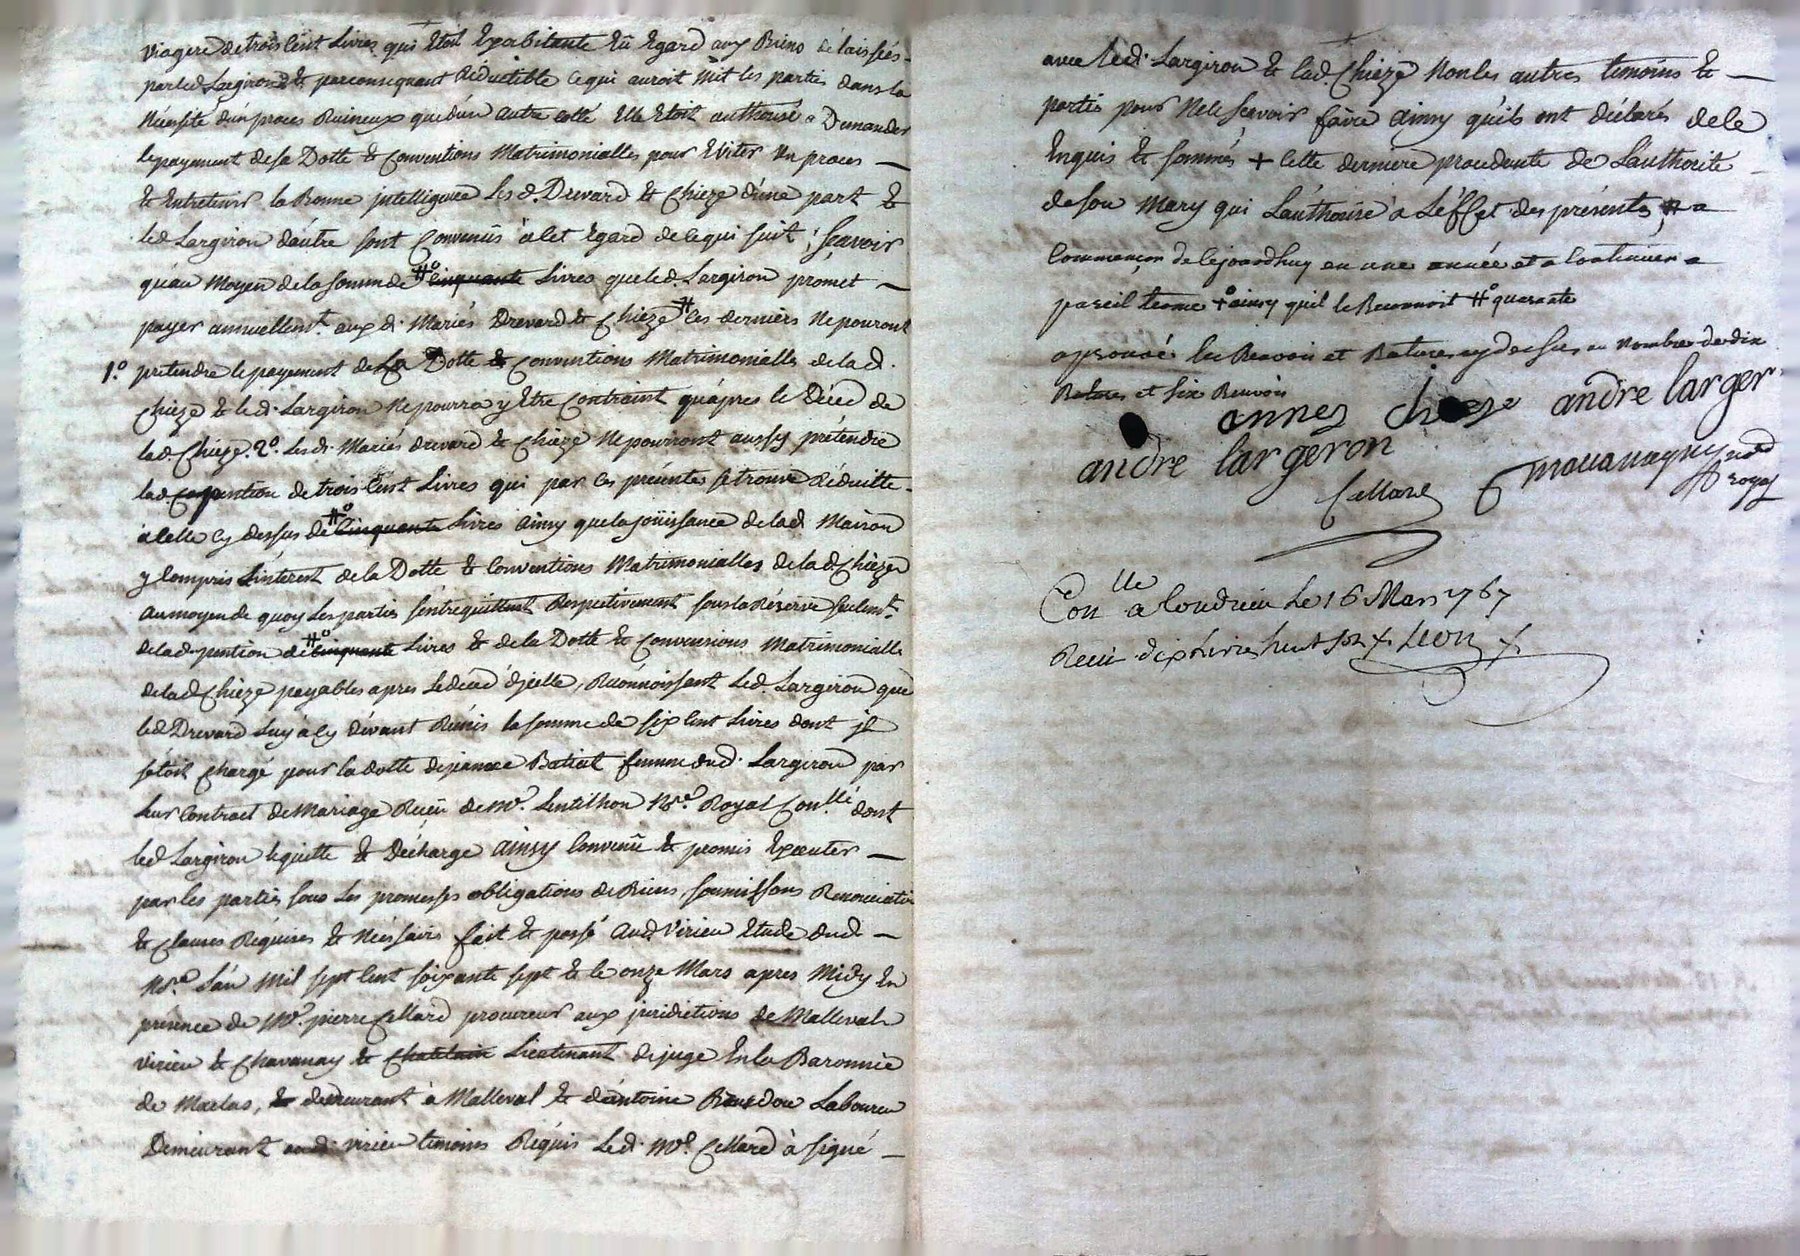 viagere de trois Cent Livres qui Etoit Exorbitante Eü Egard aux Biens delaissés
par led Largiron & par consequent Réductible ce qui auroit mit les partis dans la
Nécessité d'un proces Ruineux que d'un autre cotté Elle Etoit authorisé a Demander
le payement de sa Dotte & Conventions Matrimonialles pour Eviter un proces —
& Entretenir la Bonne jntelligence Les d. Drevard & Chieze d'une part &
led Largiron d'autre sont Convenüs à Cet Egard de ce qui suit ; Scavoir
qu'au Moyen de la somme de #° cinquante Livres que led. Largiron promet —
payer annuellemt. aux d. Mariés Drevard & Chieze # Ces derniers Ne pouront
1.° prétendre le payement de La Dotte & Conventions Matrimonialles de la d.
Chieze & le d. Largiron Ne pourra y Etre Contraint qu'après le Décéd de
la d. Chieze. 2.° Les d. Mariés drevard & Chieze Ne pourront aussy prétendre
la d pention de trois Cent Livres qui par Ces présentes se trouve Réduitte
a Celle Cy dessus de #° Cinquante Livres Ainsy que la joüissance de la d. Maison
y Compris L'intérest de la Dotte & Conventions Matrimonialles de la d Chieze
au moyen de quoy Les parties s'entrequittent Respectivement sous la Réserve seulemt.
de la d. pention de #° cinquante Livres & de la Dotte & Convensions Matrimonialle
de la d Chieze payables apres Le décéd d'jcelle, Réconnoissant Le d. Largiron que
le d Drevard Luy à Cy dévant Rémis la somme de six Cent Livres dont jl
s'etoit Chargé pour la dotte de jeanne Batiat femme dud. Largiron par
Leur Contract de Mariage Recü de Me. Lentilhon Nre. Royal Conllé dont
led Largiron le quitte & Décharge Ainsy Convenü & promis Exécuter —
par les parties sous Les promesses obligations de Biens, soumissions Renonciation
& Clauses Réquises & Nécessaires fait & passé Aud. Virieu Etude dud —
Nre. L'an Mil sept Cent soixante sept & le onze Mars apres Midy En
présence de Me. pierre Cellard procureur aux jurisdictions de Malleval
Virieu & Chavanay & Chatelain Lieutenant de juge En la Baronnie
de Maclas, & demeurant à Malleval & d'antoine Laboureur
Demeurant aud. virieu temoins Réquis Led. Me. Cellard à signé —
avec Led. Largiron & la d. Chieze Non les autres temoins & —
partis pour Ne le scavoir faire Ainsy qu'ils ont déclarés de ce
Enquis & sommés + Cette derniere procedente de L'authorité
de son Mary qui L'authorise à L'éffet des présentes, # a
Commencer de Cejourdhuy en une année et a Continuer a
pareil terme +° ainsy quil le Reconnoit #° quarante
aprouvé les Renvois et Ratures cy dessus au Nombre de dix
Ratures et six Renvois
annes chieze andre larger
andre largeron
Cellard
royal
Conlle a Condrieu Le 16 Mars 1767
Recu dix Livres huit sols Leon